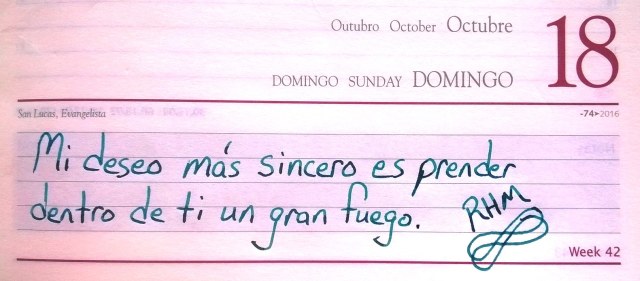 Outubro October Octubre
18
DOMINGO SUNDAY DOMINGO
San Lucas, Evangelista
-74►2016
Mi deseo más sincero es prender
dentro de ti un gran fuego.
RHM
Week 42